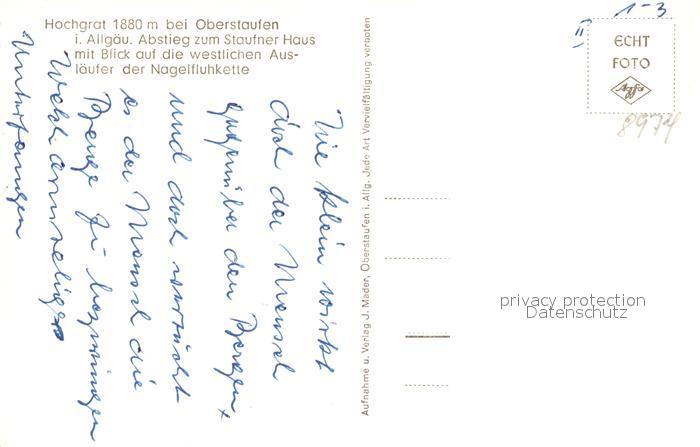 Hochgrat 1880 m bei Oberstaufen
i. Allgäu. Abstieg zum Staufner Haus
mit Blick auf die westlichen Aus-
läufer der Nagelfluhkette
Wie klein wirkt
doch der Mensch
gegenüber den Bergen
und doch versucht
es der Mensch die
Berge zu bezwingen
Welch armseliges
Unterfangen
Aufnahme u. Verlag J. Mader, Oberstaufen i. Allg. Jede Art Vervielfältigung verboten
1-3
II
ECHT
FOTO
Agfa
privacy protection
Datenschutz